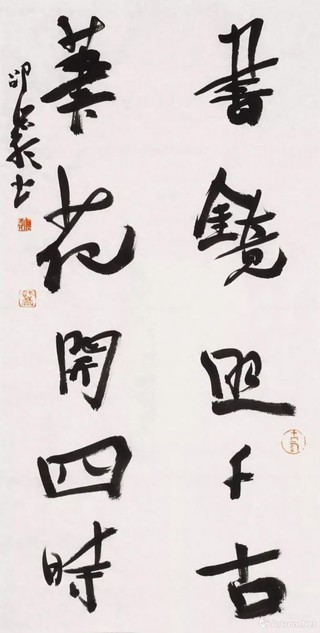 書鏡照千古
筆花開四時
邵